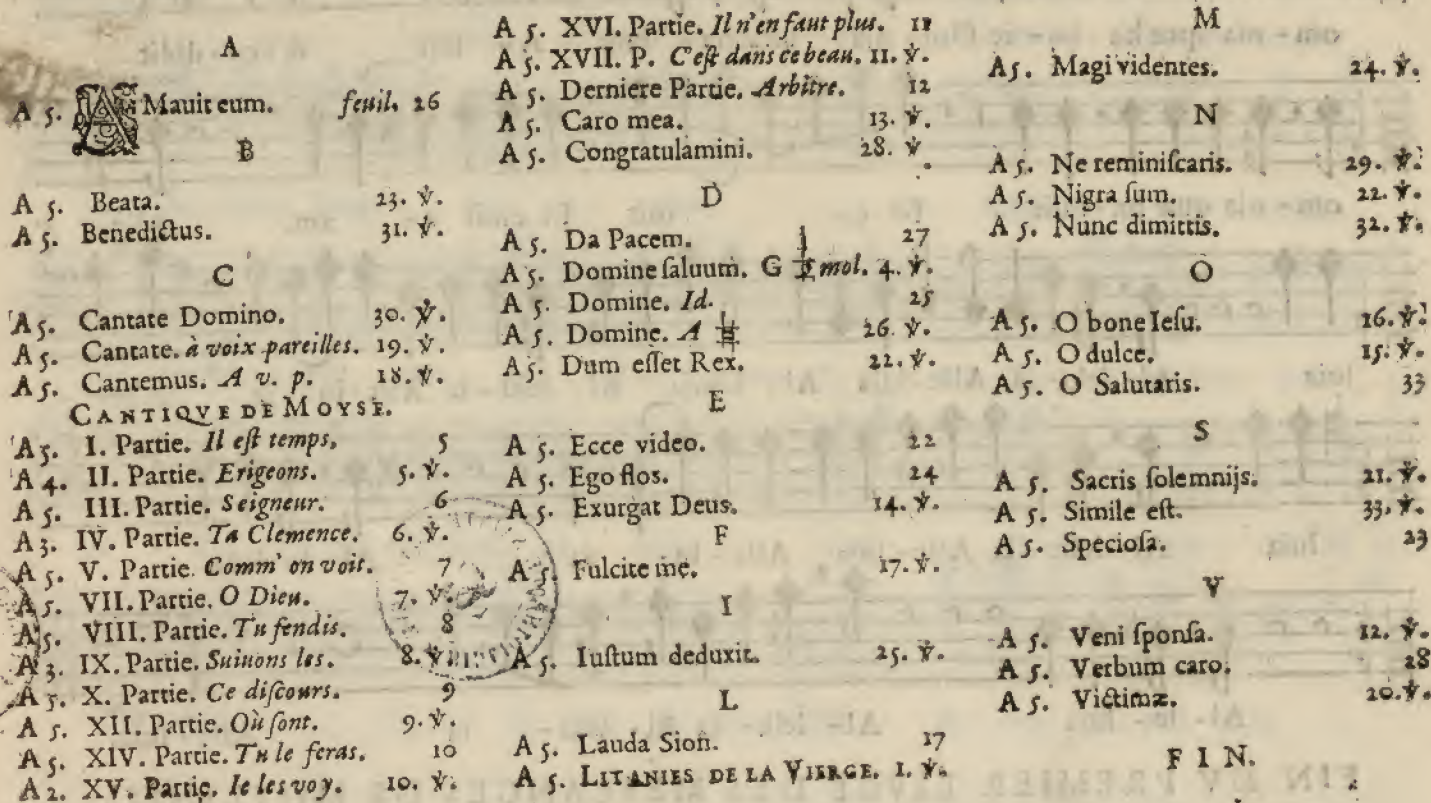 A
A 5. AMauit eum. feuil. 26
B
A 5. Beata. 23. ℣.
A 5. Benedictus. 31. ℣.
C
A 5. Cantate Domino. 30. ℣.
A 5. Cantate. à voix pareilles. 19. ℣.
A 5. Cantemus. A v. p. 18. ℣.
CANTIQVE DE MOYSE.
A 5. I. Partie. Il eſt temps, 5
A 4. II. Partie. Erigeons. 5. ℣.
A 5. III. Partie. Seigneur. 6
A 3. IV. Partie. Ta Clemence. 6. ℣.
A 5. V. Partie. Comm' on voit. 7
A 5. VII. Partie. O Dieu. 7. ℣.
A 5. VIII. Partie. Tu fendis. 8
A 3. IX. Partie. Suiuons les. 8. ℣.
A 5. X. Partie. Ce diſcours. 9
A 5. XII. Partie. Où ſont. 9. ℣.
A 5. XIV. Partie. Tu le feras. 10
A 2. XV. Partie. Ie les voy. 10. ℣.
A 5. XVI. Partie. Il n'en faut plus. 11
A 5. XVII. P. C'eſt dans ce beau. 11. ℣.
A 5. Derniere Partie. Arbitre. 12
A 5. Caro mea. 13. ℣.
A 5. Congratulamini. 28. ℣.
D
A 5. Da Pacem. 27
A 5. Domine ſaluum. G mol. 4. ℣.
A 5. Domine. Id. 25
A 5. Domine. A ♮ 26. ℣.
A 5. Dum eſſet Rex. 22. ℣.
E
A 5. Ecce video. 22
A 5. Ego flos. 24
A 5. Exurgat Deus. 14. ℣.
F
A 5. Fulcite me. 17. ℣.
I
A 5. Iuſtum deduxit. 25. ℣.
L
A 5. Lauda Sion. 17
A 5. LITANIES DE LA VIERGE. 1. ℣.
M
A 5. Magi videntes. 24. ℣.
N
A 5. Ne reminiſcaris. 29. ℣.
A 5. Nigra ſum. 22. ℣.
A 5. Nunc dimittis. 32. ℣.
O
A 5. O bone Ieſu. 16. ℣.
A 5. O dulce. 15. ℣.
A 5. O Salutaris. 33
S
A 5. Sacris ſolemnijs. 21. ℣.
A 5. Simile eſt. 33. ℣.
A 5. Specioſa. 23
V
A 5. Veni ſponſa. 12. ℣.
A 5. Verbum caro. 28
A 5. Victimæ. 20. ℣.
FIN.